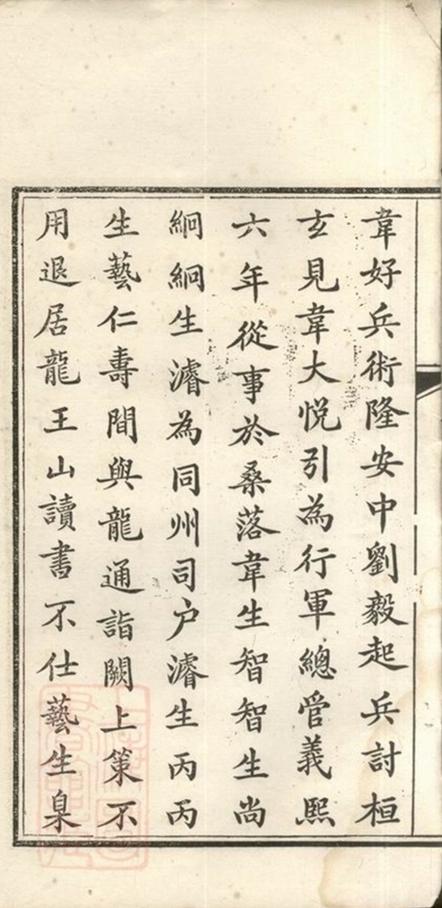 韋好兵術隆安中劉毅起兵討桓
玄見韋大悅引為行軍總管義熙
六年從事於桑落韋生智智生尚
絅絅生濬為同州司户濬生丙丙
生藝仁壽間與龍通詣闕上策不
用退居龍王山讀書不仕藝生臬